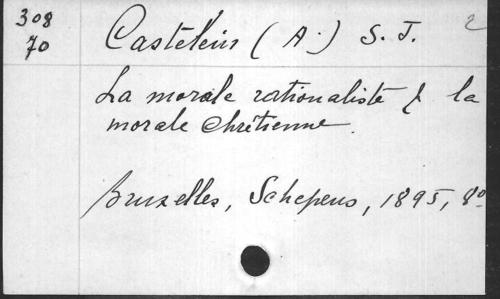 308
70
Castelein (A.) S. J. 2
La morale rationaliste & la
morale chrétienne.
Bruxelles, Schepens, 1895, 8º